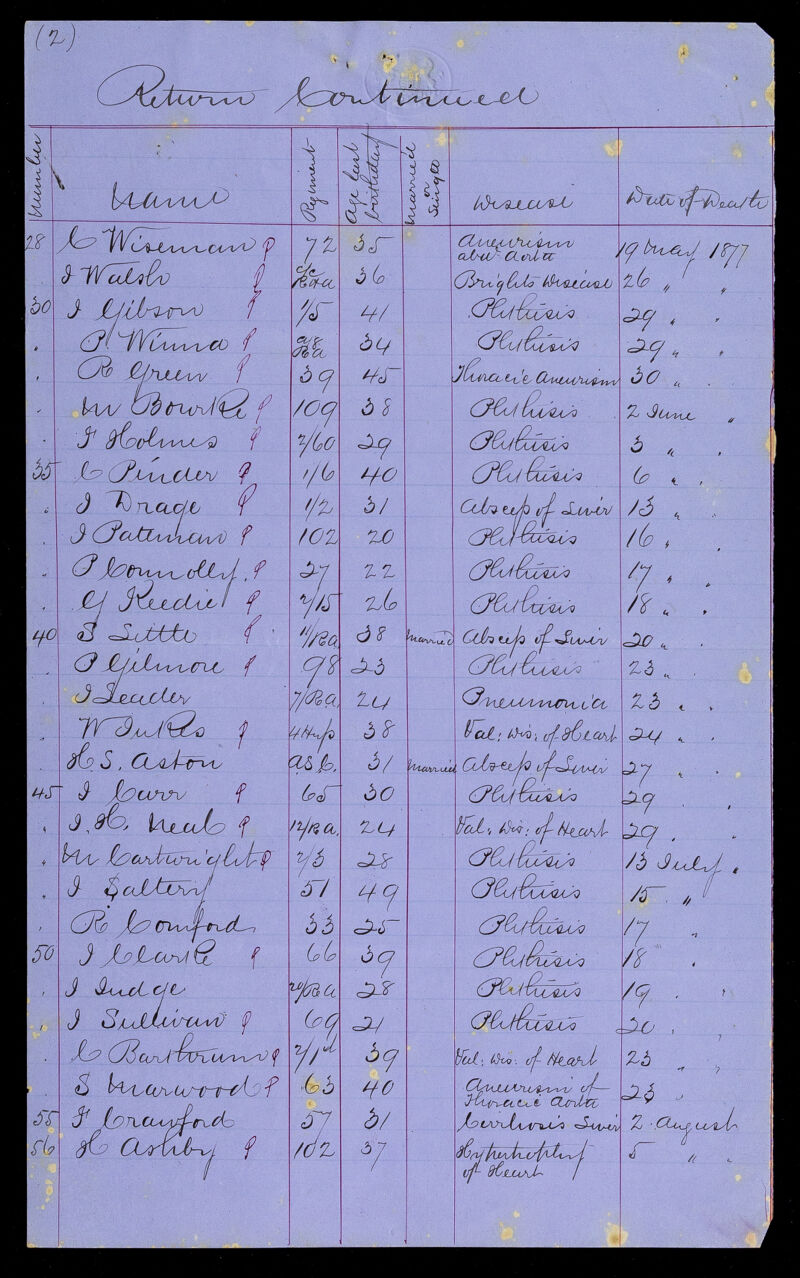 (2)
Return Continued
Number Name Regiment Age last birthday Married or Single Disease Date of Death
28 C Wiseman P 72 35 Aneurism abd: Aorta 19 May 1877
. J Walsh P 36 Brights Disease 26 " "
30 J Gibson P 1/5 41 Phthisis 29 " "
. P. Winna P 34 Phthisis 29 " "
. R Green P 39 45 Thoracic Aneurism 30 " "
. M Bourke P 109 38 Phthisis 2 June "
. F Holmes P 2/60 29 Phthisis 3 " "
35 C Pinder P 1/6 40 Phthisis 6 " "
. J Drage P 1/2 31 Abscess of Liver 13 " "
. J Pateman P 102 20 Phthisis 16 " "
. P Connolly. P 27 22 Phthisis 17 " "
. G Keedie P 2/15 26 Phthisis 18 " "
40 S Little P 11/RA. 38 Married Abscess of Liver 20 " "
. P Gilmore P 98 23 Phthisis 23 " "
. J Leader 7/RA. 24 Pneumonia 23 " "
. W Jukes P 4 Hus 38 Val: Dis: of Heart 24 " "
. H. S. Aston A.S.C. 31 Married Abscess of Liver 27 " "
45 J Carr P 65 30 Phthisis 29 " "
. J. H. Neal P 12/RA. 24 Val: Dis: of Heart 29 " "
. M Cartwright P 2/3 28 Phthisis 13 July "
. J Saltery 51 49 Phthisis 15 "
. R Comford 33 25 Phthisis 17 "
50 J Clarke P 66 39 Phthisis 18 "
. J Judge 20/RA 28 Phthisis 19 " "
. J Sullivan P 69 21 Phthisis 20 " "
. C Barthrum P 2/1st 39 Val: Dis: of Heart 23 " "
. S Marwood P 63 40 Aneurism of Thoracic Aorta 23 "
55 F Crawford 57 31 Cirrhosis Liver 2 August
56 H Ashby P 102 37 Hypertrophy of Heart 5 " "